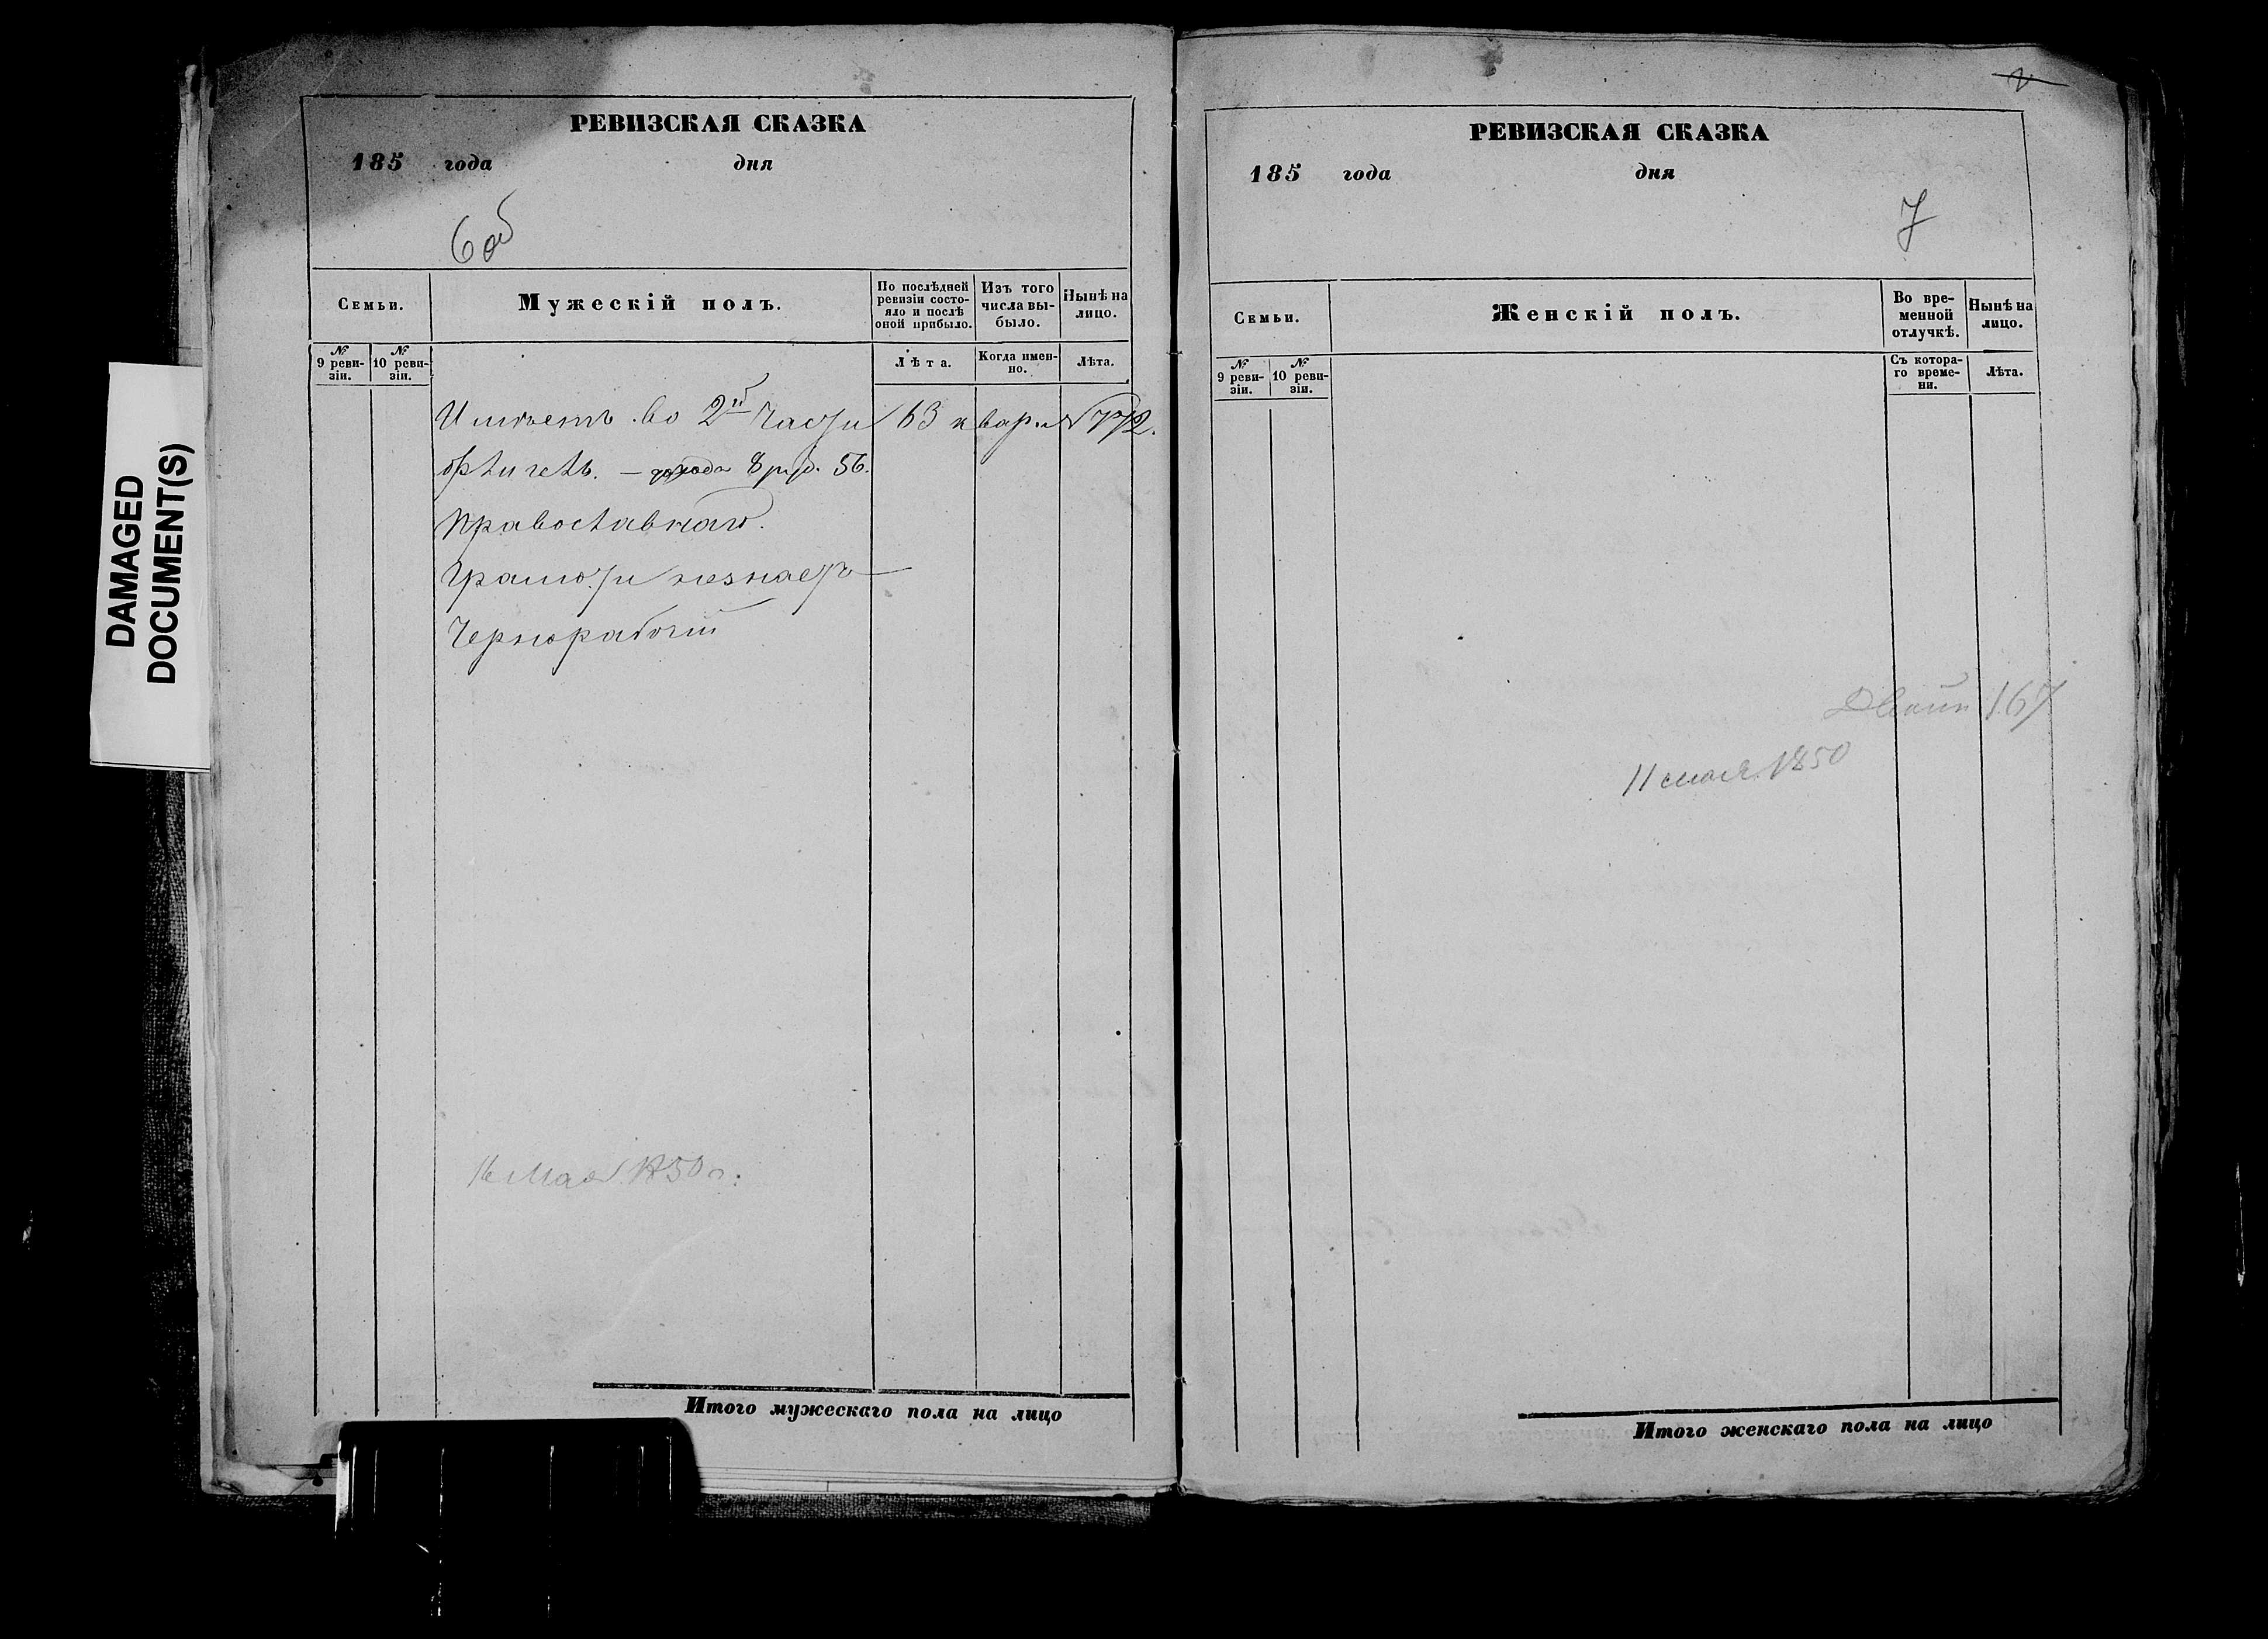 DAMAGED
DOCUMENT(S)
РЕВИЗСКАЯ СКАЗКА
185 года дня
6об
Семьи.
Мужескій полъ.
По послѣдней ревизіи состо-
яло и послѣ
оной прибыло.
Изъ того
числа вы-
было.
Нынѣ на
лицо.
№
9 реви-
зіи.
№
10 реви-
зіи.
Лѣта.
Когда имен-
но.
Лѣта.
Имѣетъ во 2й части 63 квар. № 772.
8 р. 56.
Православнаго.
Грамоти незнаетъ
Чернорабочій
16 Мая 1850 г.
Итого мужескаго пола на лицо
РЕВИЗСКАЯ СКАЗКА
185 года дня
7
Семьи.
Женскій полъ.
Во вре-
менной
отлучкѣ.
Нынѣ на
лицо.
№
9 реви-
зіи.
№
10 реви-
зіи.
Съ котора-
го време-
ни.
Лѣта.
167
11 мая 1850
Итого женскаго пола на лицо